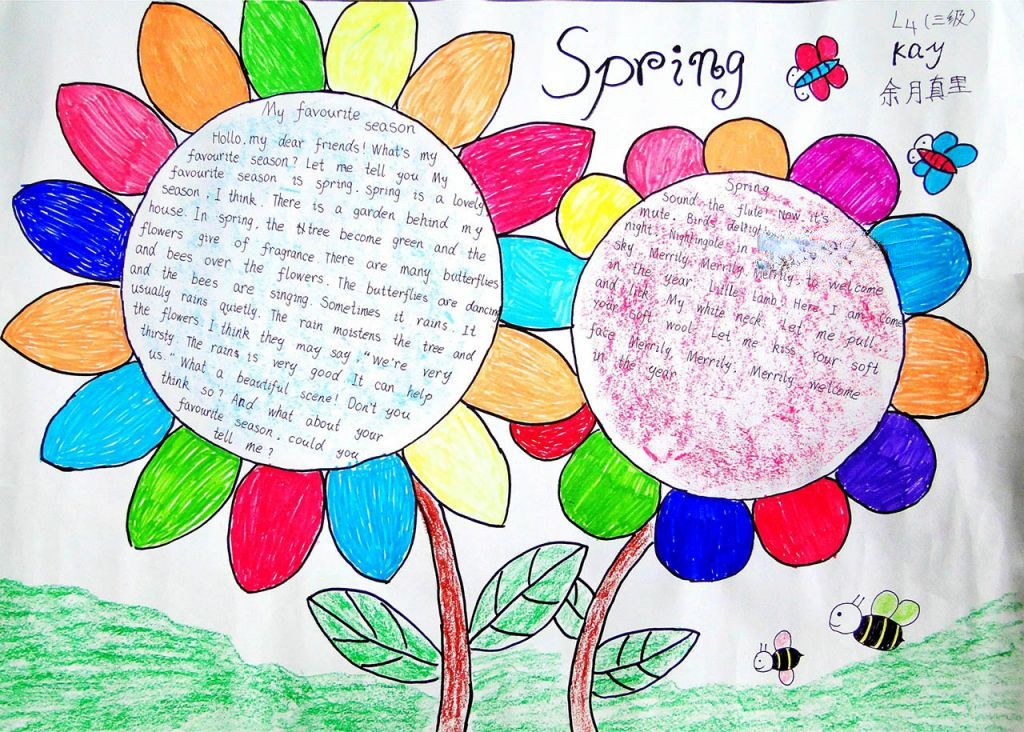 Spring
L4 (三级)
Kay
余月真里
My favourite
season
Hollo, my dear friends! What's my
favourite season? Let me tell you My
favourite season is spring. spring is a lovely
season, I think. There is a garden behind my
house. In spring, the tree become green and the
flowers give of fragrance There are many butterflies
and bees over the flowers. The butterflies are dancing
and the bees are singing. Sometimes it rains. It
usually rains quietly. The rain moistens the tree and
the flowers. I think they may say, "We're very
thirsty. The rains is very good. It can help
us." What a beautiful scene! Don't you
think so? And what about your
favourite season, could you
tell me?
Spring
Sound the flute! Now it's
mute. Birds delight
night. Nightingale in
sky. Merrily. Merrily. Merrily. to welcome
in the year. Little Lamb! Here I am. come
and lick My white neck. Let me pull.
your soft wool. Let me kiss Your soft
face Merrily. Merrily. Merrily. welcome
in the year